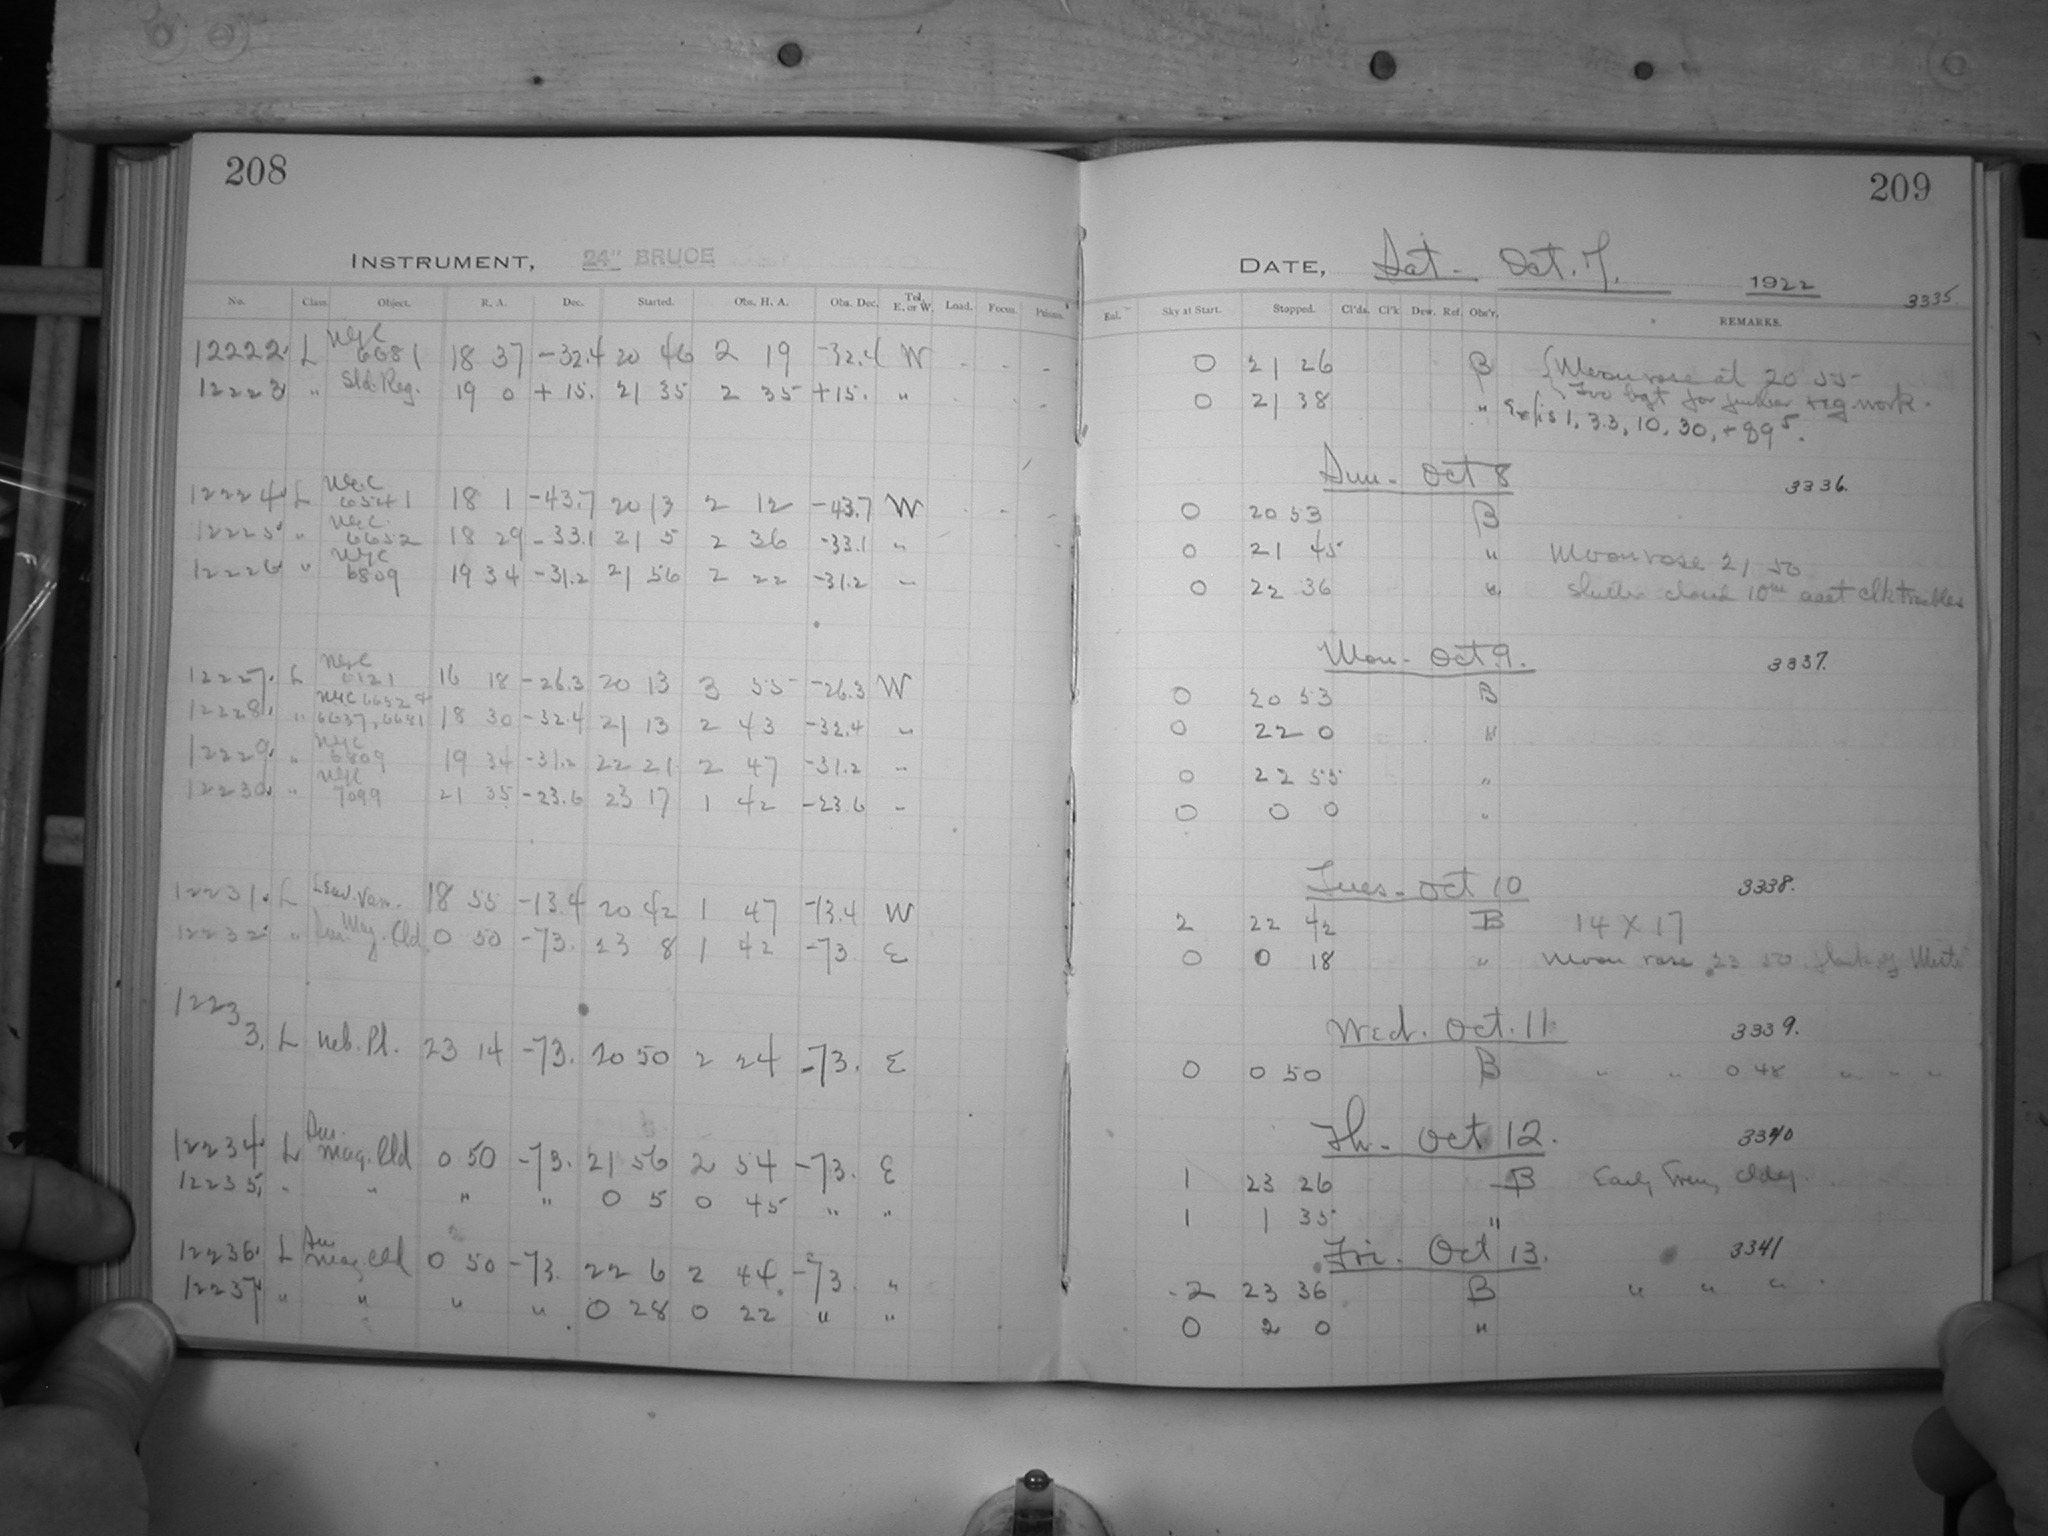 208
INSTRUMENT, 24" BRUCE
No. Class. Object. R. A. Dec. Started. Obs. H. A. Obs. Dec. Tel. E. or W. Load. Focus. Prisms.
12222 L NGC 6681 18 37 -32.4 20 46 2 19 -32.4 W
12223 " Std. Reg. 19 0 +15. 21 35 2 35 +15. "
12224 L NGC 6541 18 1 -43.7 20 13 2 12 -43.7 W
12225 " NGC 6652 18 29 -33.1 21 5 2 36 -33.1 "
12226 " NGC 6809 19 34 -31.2 21 56 2 22 -31.2 "
12227 L NGC 6121 16 18 -26.3 20 13 3 55 -26.3 W
12228 " NGC 6652 & 6637, 6681 18 30 -32.4 21 13 2 43 -32.4 "
12229 " NGC 6809 19 34 -31.2 22 21 2 47 -31.2 "
12230 " NGC 7099 21 35 -23.6 23 17 1 42 -23.6 "
12231 L Var. 18 55 -13.4 20 42 1 47 -13.4 W
12232 " Sm. Mag. Cld 0 50 -73. 23 8 1 42 -73 E
12233. L Neb. Pl. 23 14 -73. 20 50 2 24 -73. E
12234 L Sm. Mag. Cld 0 50 -73. 21 56 2 54 -73. E
12235 " " " " 0 5 0 45 " "
12236 L Sm Mag. Cld 0 50 -73. 22 6 2 44 -73. "
12237 " " " " 0 28 0 22 " "
209
DATE, Sat - Oct. 7. 1922
3335.
Ent. Sky at Start. Stopped. Cl'ds. Cl'k Dew. Ref. Obs'r. REMARKS.
0 21 26 B Moon rose at 20 55
Too bgt for further reg. work.
0 21 38 " Exp's 1, 3.3, 10, 30, + 89 s.
Sun - Oct 8 3336.
0 20 53 B
0 21 45 " Moon rose 21 50
0 22 36 " Shutter closed 10m acct clk troubles
Mon - Oct 9. 3337.
0 20 53 B
0 22 0 "
0 22 55 "
0 0 0 "
Tues - Oct 10 3338.
2 22 42 B 14 X 17
0 0 18 " Moon rose 23 50
Wed. Oct. 11 3339.
0 0 50 B " " 0 48 " " "
Th - Oct 12. 3340
1 23 26 B Early Cldy.
1 1 35 "
Fri. Oct 13. 3341
2 23 36 B " " "
0 2 0 "